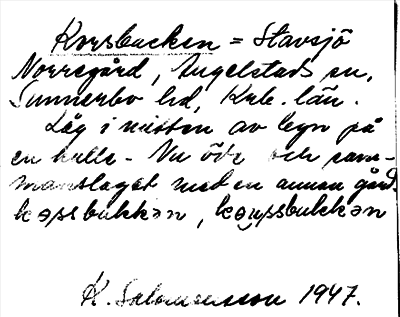 Korsbacken = Stavsjö
Norregård, Angelstads sn,
Sunnerbo hd, Krb. län.
Låg i mitten av byn på
en kulle - Nu öde och sam-
manslaget med en annan gård.
kɷpsbukkən, kɷrpsbukkən
K. Salomonsson 1947.